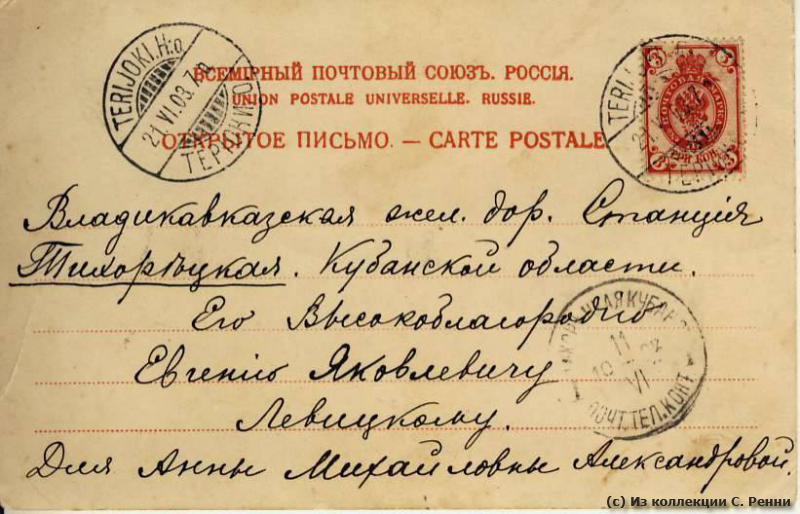 ВСЕМІРНЫЙ ПОЧТОВЫЙ СОЮЗЪ. РОССІЯ.
UNION POSTALE UNIVERSELLE. RUSSIE.
ОТКРЫТОЕ ПИСЬМО. — CARTE POSTALE
TERIJOKI.H:o.
21.VI.03.
ТЕРІОКИ
TERIJ
3 3
ПОЧТОВАЯ МАРКА
ТРИ КОП.
3 3
Владикавказская жел. дор. Станція
Тихорѣцкая. Кубанской области.
Его Высокоблагородію
Евгенію Яковлевичу
Левицкому.
Для Анны Михайловны Александровой.
11
VI
ПОЧТ.ТЕЛ.КОНТ
(c) Из коллекции С. Ренни